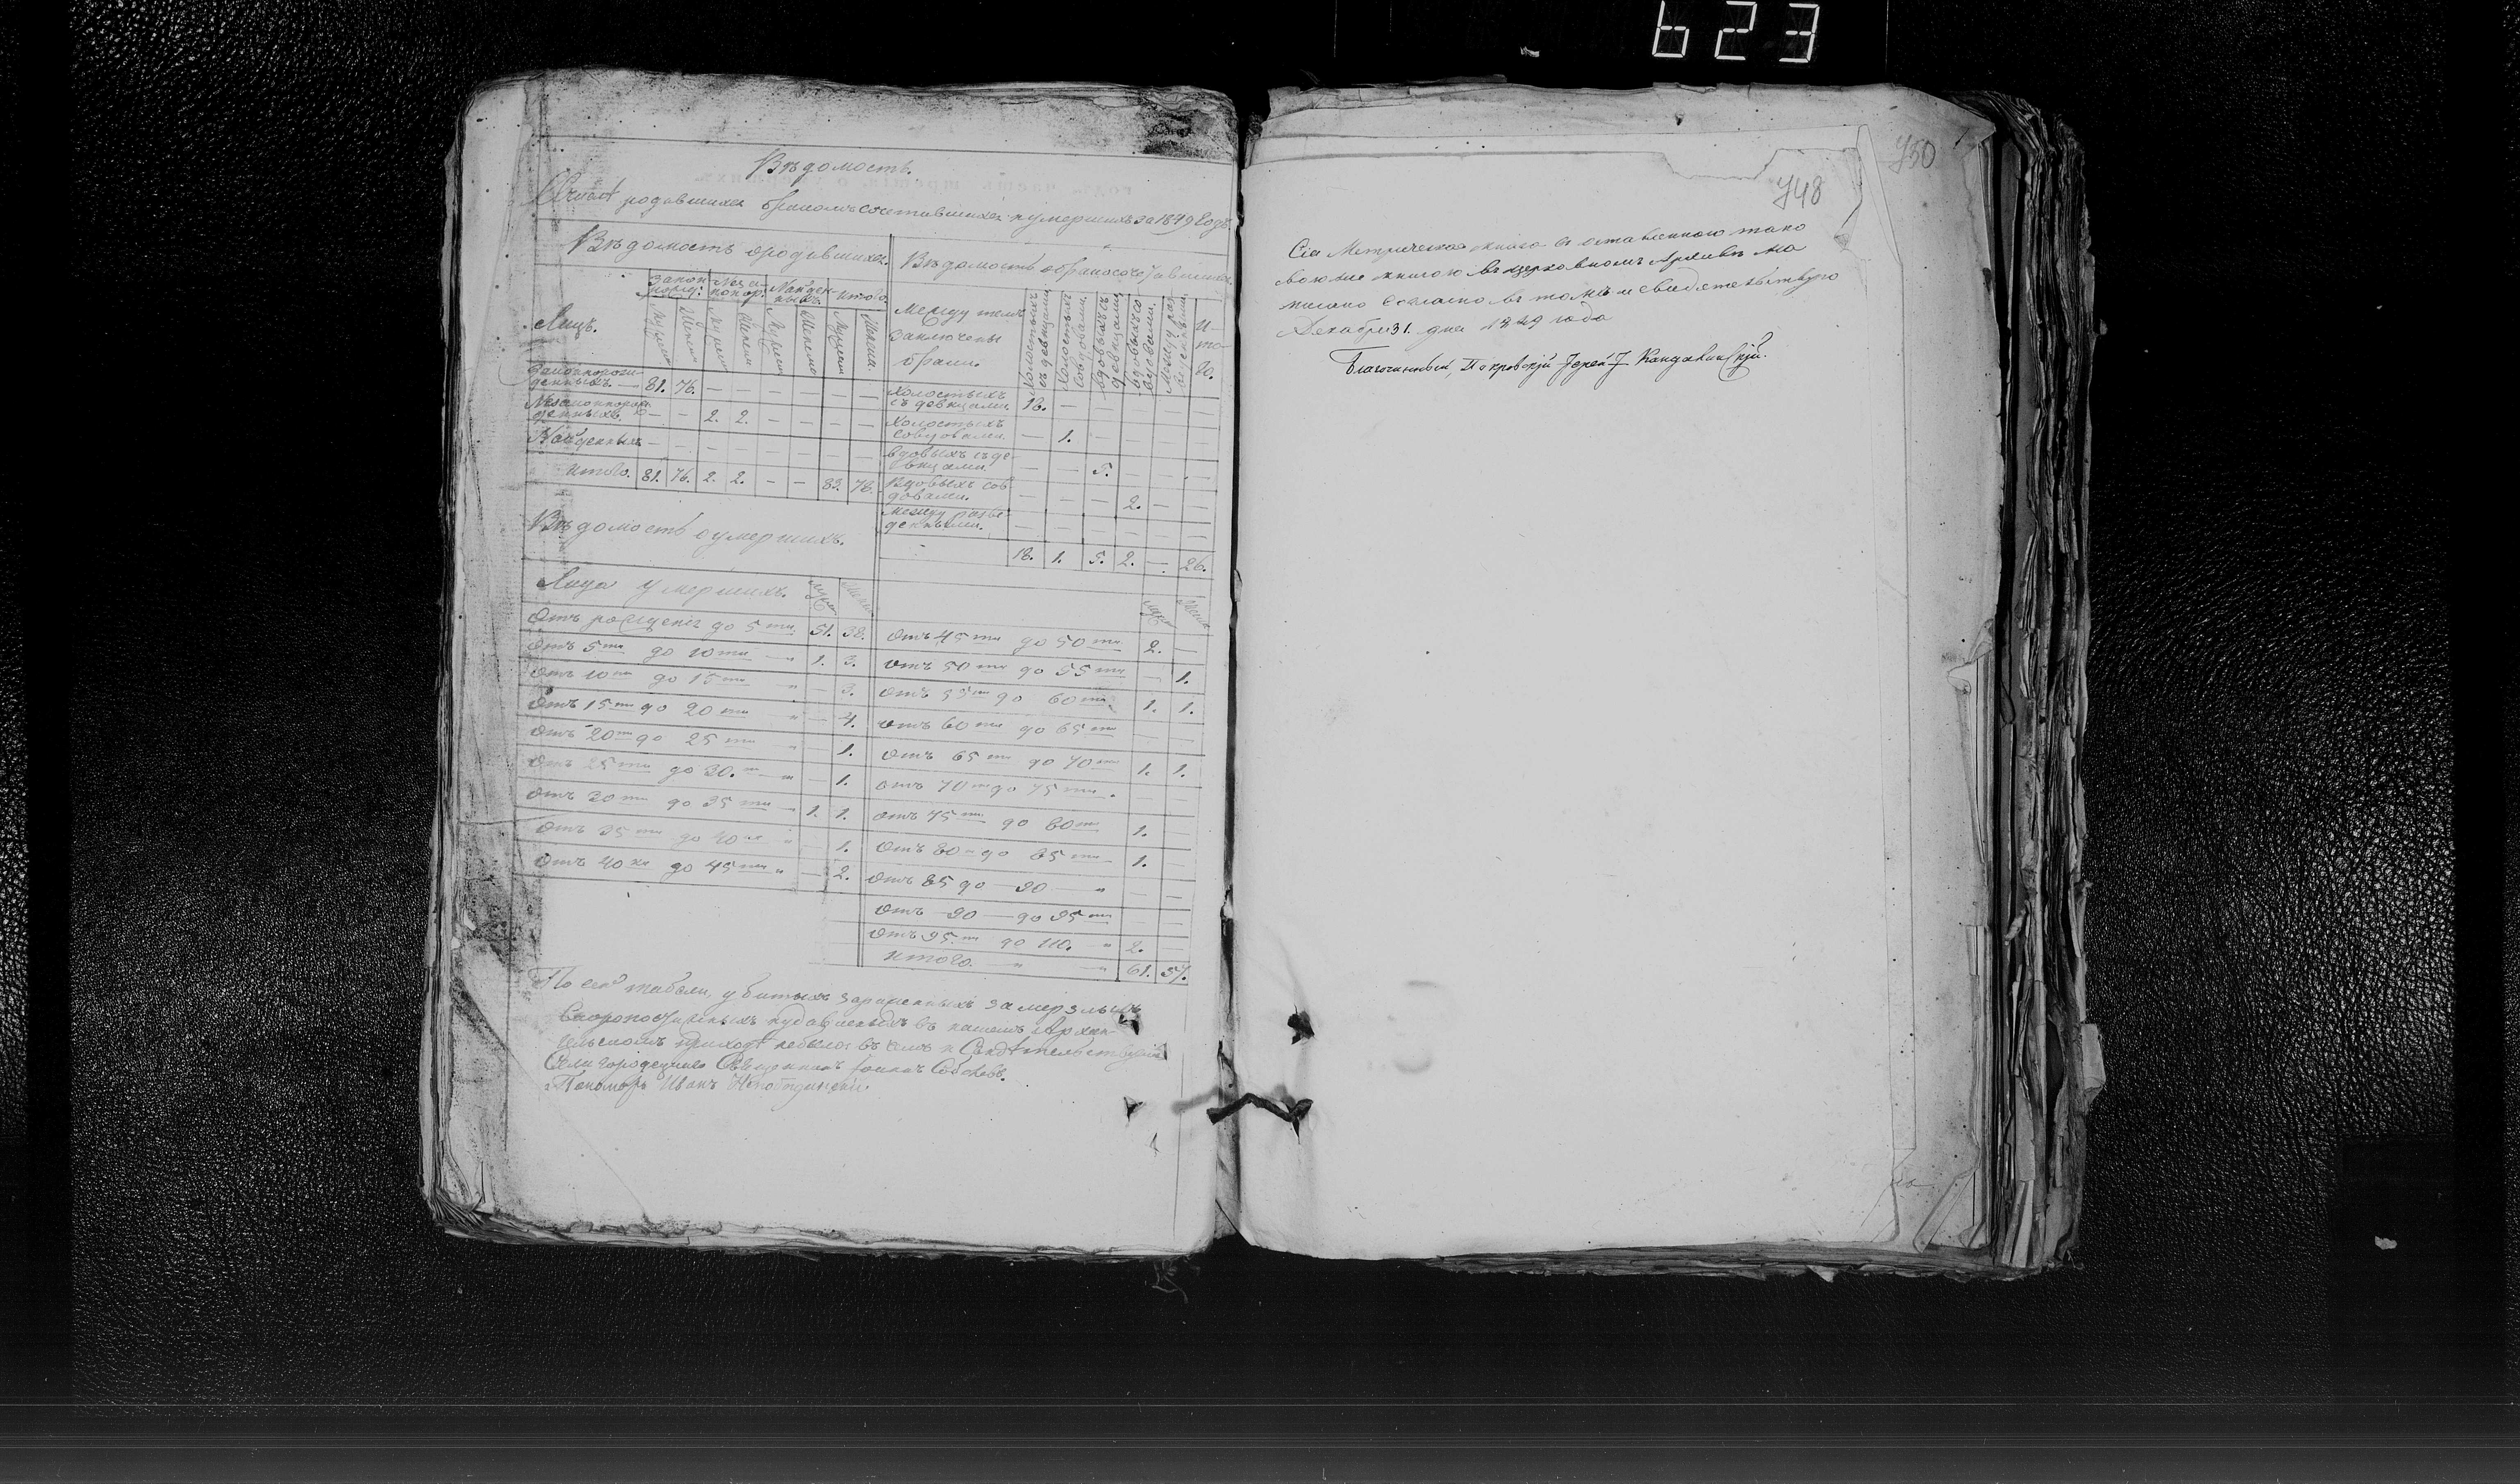 623
Вѣдомость
родившихся бракомъ сочетавшихся и умершихъ за 1879 годъ.
Вѣдомость о родившихся.
Закон. рожд: Незаконор. Найденныхъ. Итого.
Лицъ.
Мужеск Женск
Законнорожденныхъ. — 81. 76. — — — — — —
Незаконнорожденныхъ. — — 2. 2. — — — —
Найденныхъ — — — — — — — —
Итого. 81. 76. 2. 2. — — 83. 78.
Вѣдомость о бракосочетавшихся.
Между кемъ заключены браки.
Холостыхъ съ девицами.
Холостыхъ со вдовами.
Вдовыхъ съ девицами.
Вдовыхъ со вдовами.
Между разведенными.
Итого.
Холостыхъ съ девицами. 18. — — — — —
Холостыхъ со вдовами. — 1. — — — —
Вдовыхъ съ девицами. — — 5. — — —
Вдовыхъ со вдовами. — — — 2. — —
Между разведенными. — — — — — —
18. 1. 5. 2. — 26.
Вѣдомость о умершихъ.
Лица умершихъ.
Отъ рожденія до 5 ти 51. 38.
Отъ 5 ти до 10 ти — " 1. 3.
Отъ 10 ти до 15 ти " — 3.
Отъ 15 ти до 20 ти " — 4.
Отъ 20 ти до 25 ти " — 1.
Отъ 25 ти до 30. — 1.
Отъ 30 ти до 35 ти — " 1. 1.
Отъ 35 ти до 40 " 1.
Отъ 40 до 45 ти " — 2.
Отъ 45 ти до 50 ти 2. —
Отъ 50 ти до 55 ти — 1.
Отъ 55 ти до 60 ти 1. 1.
Отъ 60 ти до 65 ти — —
Отъ 65 ти до 70 ти 1. 1.
Отъ 70 ти до 75 ти. — —
Отъ 75 ти до 80 ти 1. —
Отъ 80 до 85 ти 1. —
Отъ 85 до — 90 — " — —
Отъ — 90 — до 95 ти — —
Отъ 95. ти до 110. " 2. —
Итого. — " — " 61. 57.
По сей табели, убитыхъ зараженныхъ замерзлыхъ
скоропостижныхъ и удавленыхъ въ нашемъ
приходѣ небыло въ чемъ и Свидѣтельствуемъ
Священникъ Іоаннъ
Пономарь Иванъ
750
748
Сія Метрическая книга съ оставленною тако
вою же книгою въ церковномъ Архивѣ на
писана согласно въ томъ и свидѣтельствую
Декабря 31. дня 1879 года
Благочинный, Покровскій Іерей І Кандавинскій.